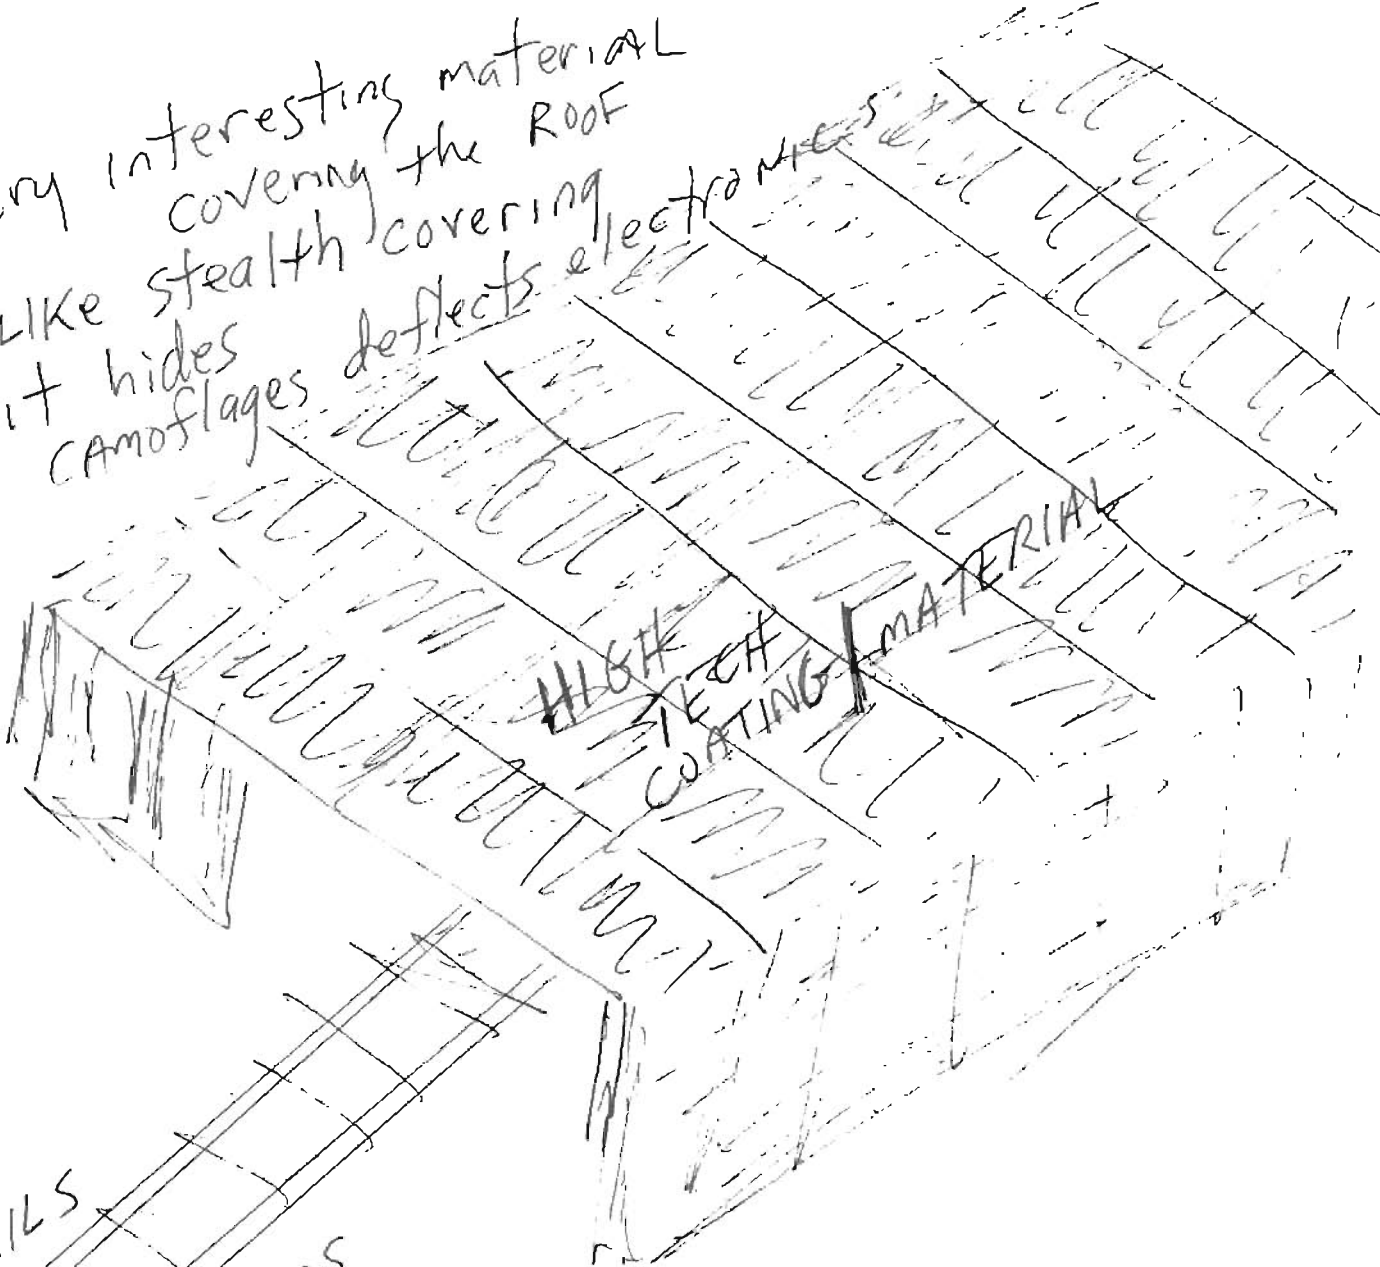 ry interesting material
covering the ROOF
LIKE stealth covering
it hides
CAMOflages deflects electronics
HIGH
TECH
COATING / MATERIAL
ILS
S